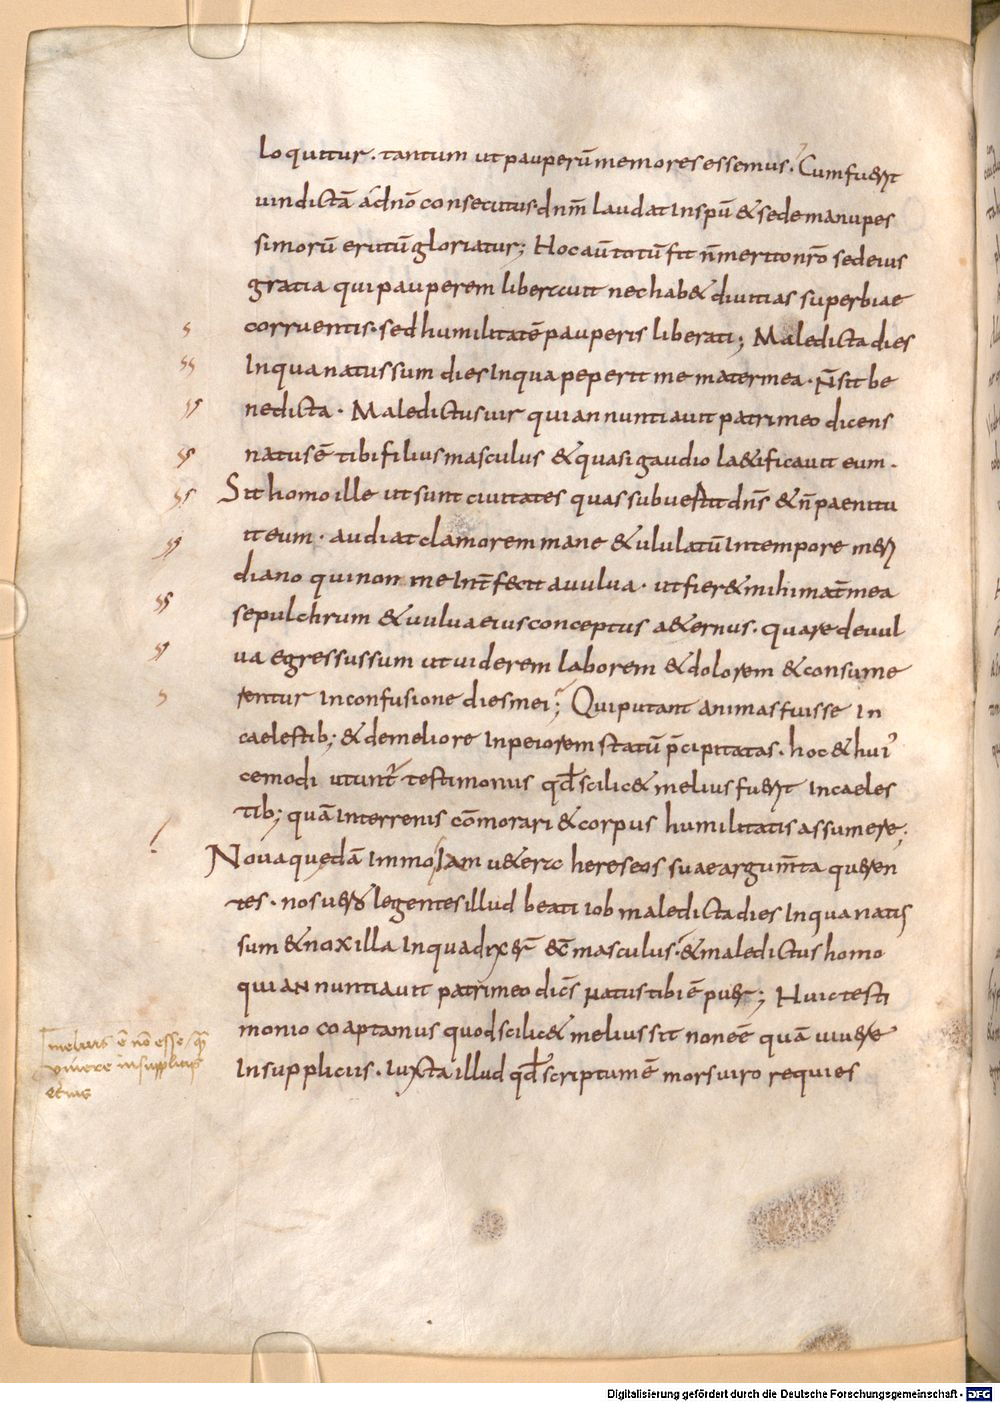 loquitur. tantum ut pauperū memores essemus. Cum fuerit
uindictā a dnō consecutus. dnm̄ laudat In spū & se de manu pes
simorū erutū gloriatur; Hoc aū totū fit n̄ merito nrō sed eius
gratia qui pauperem liberauit nec hab& diuitias superbiae
corruentis. sed humilitatē pauperis liberati; Maledicta dies
In qua natus sum dies In qua peperit me mater mea. N̄ sit be
nedicta. Maledictus uir qui annuntiauit patri meo dicens
natus ē tibi filius masculus & quasi gaudio la&ificauit eum.
Sit homo ille ut sunt ciuitates quas subuertit dns̄ & n̄ paenitu
it eum. audiat clamorem mane & ululatū In tempore meri
diano qui non me Int̄fecit a uulua. ut fier& mihi mat̄ mea
sepulchrum & uulua eius conceptus a&ernus. quare de uul
ua egressus sum ut uiderem laborem & dolorem & consume
rentur In confusione dies mei; Qui putant animas fuisse In
caelestib; & de meliore In peiorem statū p̄cipitatas. hoc & hui'
cemodi utunt̄ testimoniis qd̄ scilic& melius fuerit In caeles
tib; quā In terrenis cōmorari & corpus humilitatis assumere;
Noua quedā Immo Iam u&eris hereseos suae argum̄ta queren
tes. nos uero legentes illud beati iob maledicta dies In qua natus
sum & nox illa In qua dixer̄ ec̄ masculus. & maledictus homo
qui annuntiauit patri meo dic̄s Natus tibi ē puer; Huic testi
monio coaptamus quod scilic& melius sit non eē quā uiuere
In suppliciis. Iuxta illud qd̄ scriptum ē mors uiro requies
melius ē nō esse / quā
viuere in suppliciis
etnis
Digitalisierung gefördert durch die Deutsche Forschungsgemeinschaft - DFG